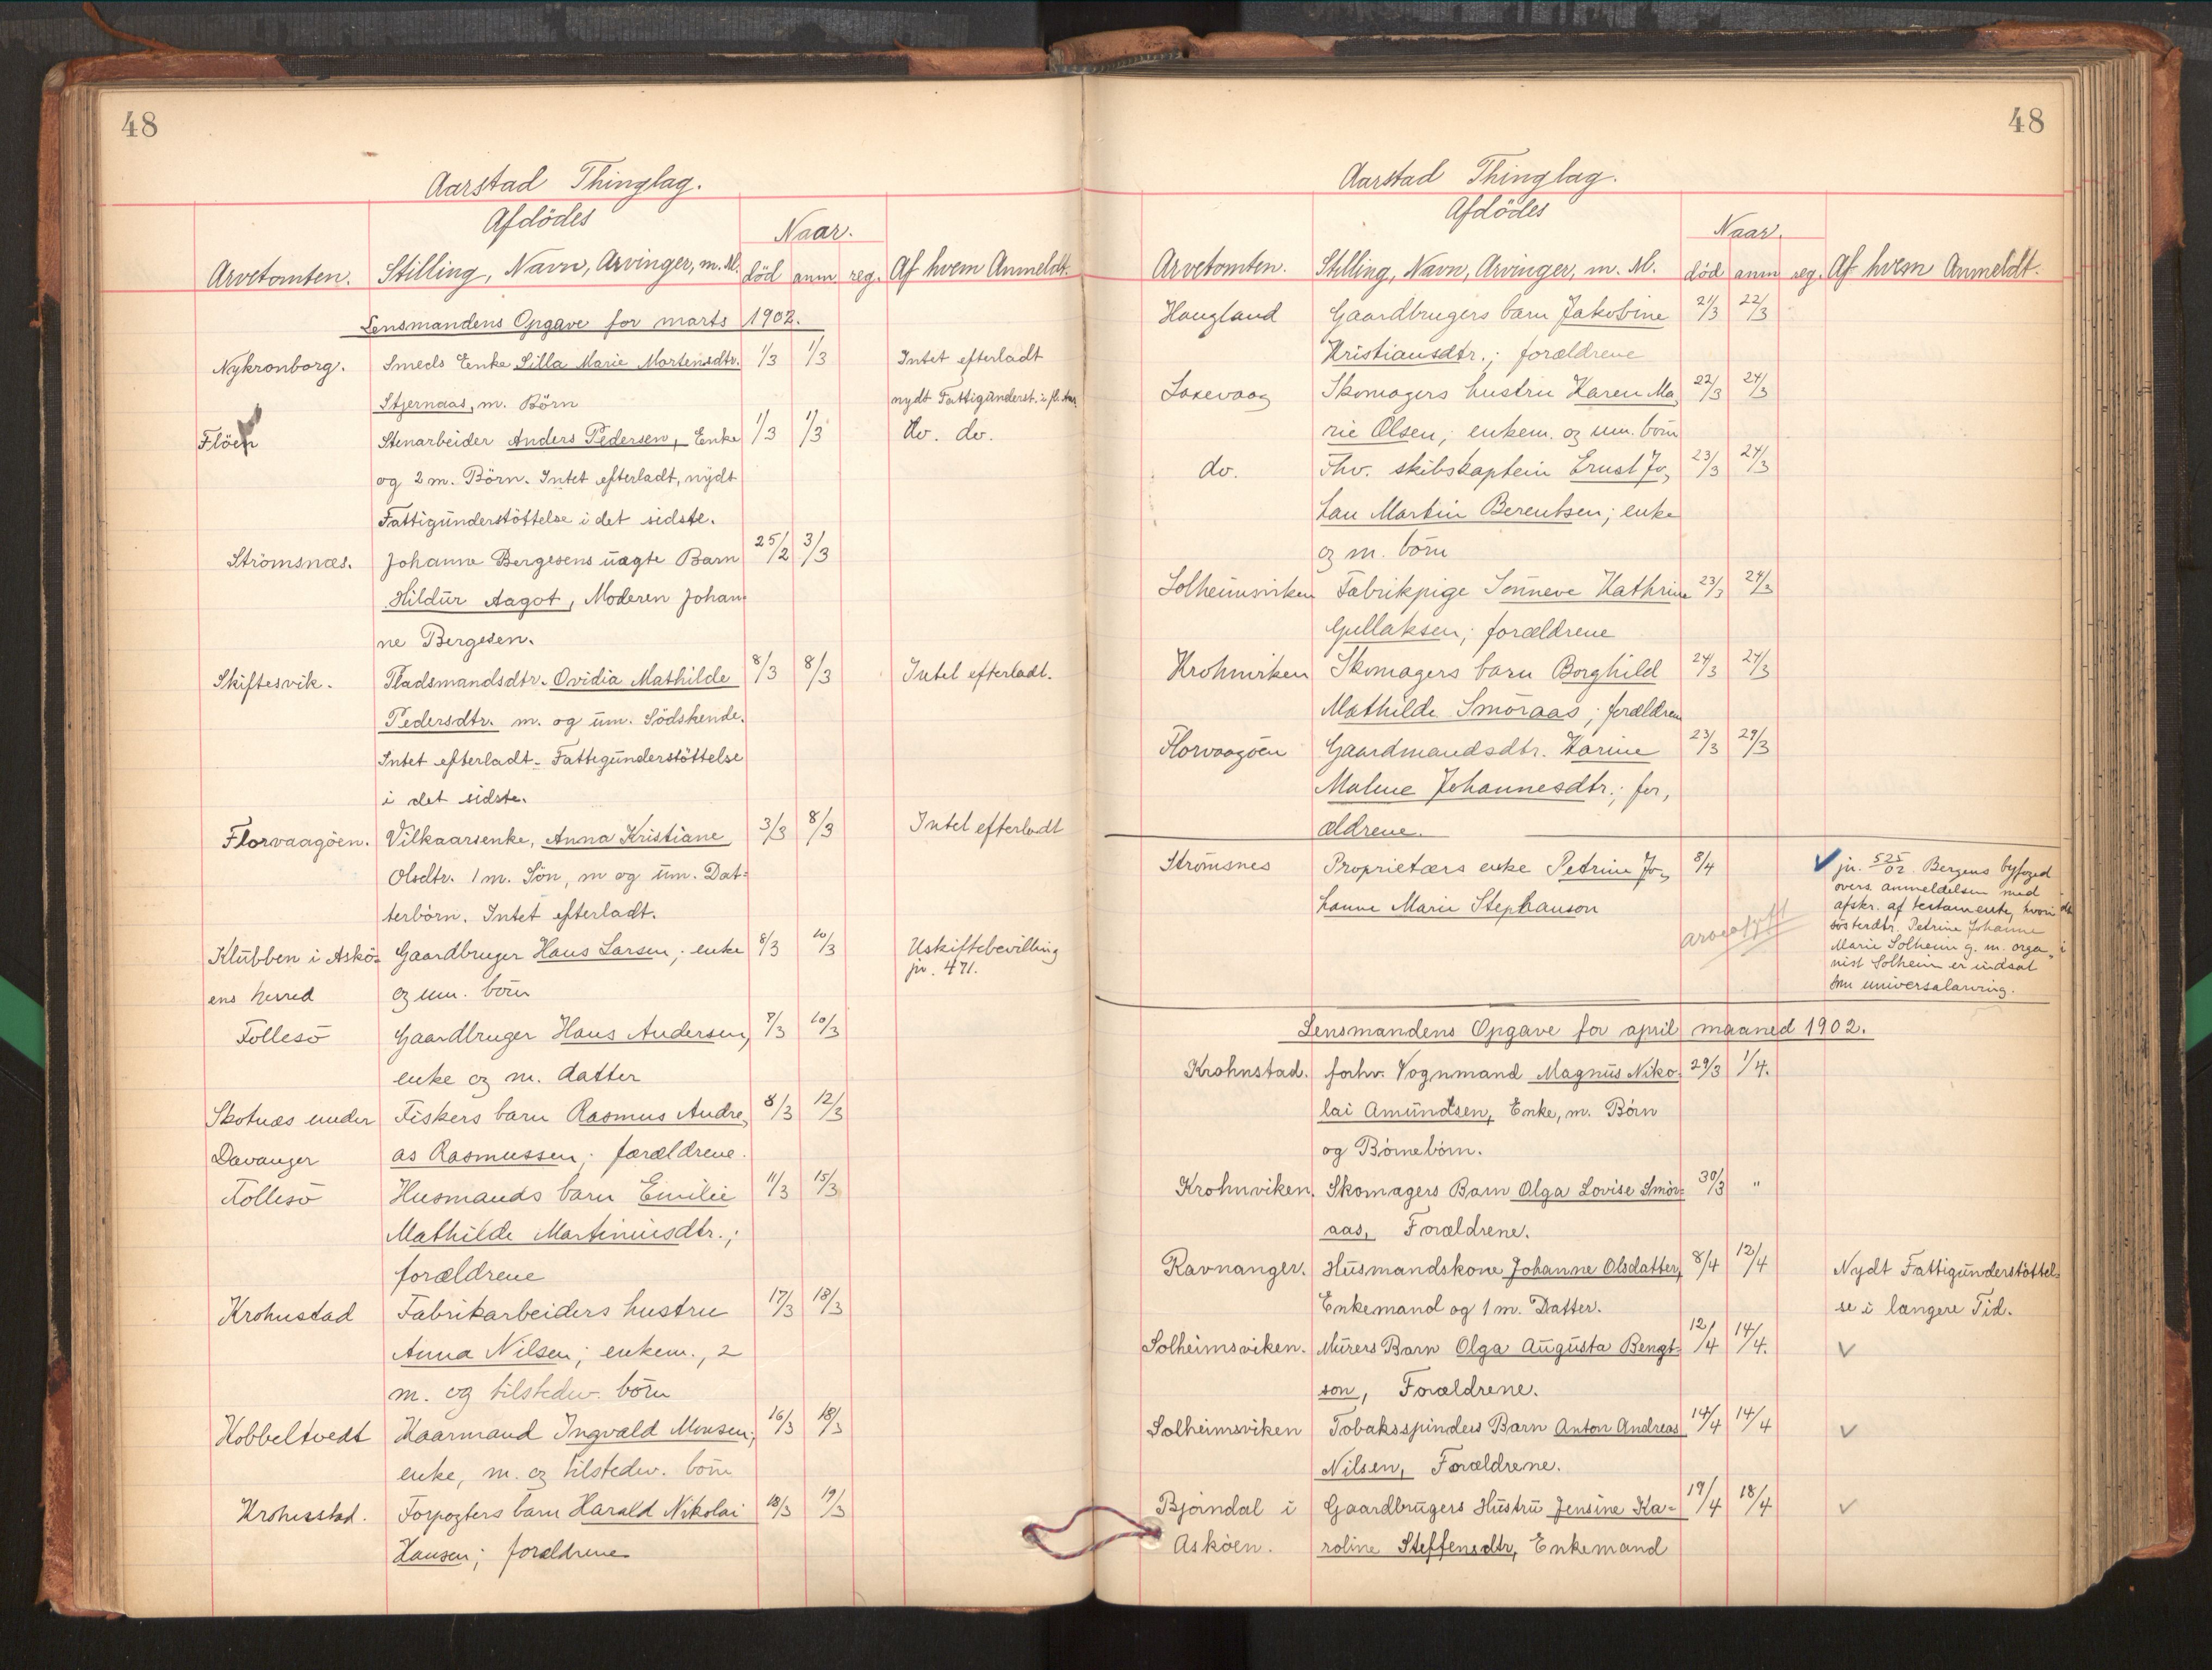 48
Aarstad Thinglag.
Arvetomten. Afdödes Stilling, Navn, Arvinger, m. M. Naar. död anm. reg. Af hvem Anmeldt.
Lensmandens Opgave for marts 1902.
Nykronborg. Smeds Enke Silla Marie Mortensdtr. 1/3 1/3 Intet efterladt
Stjernaas, m. Börn nydt Fattigünderst. i fl. Aar.
Flöen Stenarbeider Anders Pedersen, Enke 1/3 1/3 do. do.
og 2 m. Börn. Intet efterladt, nydt
Fattigünderstöttelse i det sidste.
Strömsnæs. Johanne Bergesens üægte Barn 25/2 3/3
Hildür Aagot, Moderen Johan-
ne Bergesen.
Skiftesvik. Pladsmandsdtr. Ovidia Mathilde 8/3 8/3 Intet efterladt.
Pedersdtr. m. og üm. Södskende.
Intet efterladt. Fattigünderstöttelse
i det sidste.
Florvaagöen. Vilkaarsenke, Anna Kristiane 3/3 8/3 Intet efterladt
Olsdtr. 1 m. Sön, m og üm. Dat-
terbörn. Intet efterladt.
Klübben i Askö- Gaardbruger Hans Larsen; enke 8/3 10/3 Uskiftebevilling
ens herred og um. börn jr. 471.
Follesö Gaardbruger Hans Andersen, 8/3 10/3
enke og m. datter
Skotnes under Fiskers barn Rasmus Andre, 8/3 12/3
Davanger as Rasmussen; forældrene.
Follesö Husmands barn Emilie 11/3 15/3
Mathilde Martiniusdtr.;
forældrene
Krohnstad Fabrikarbeiders hustru 17/3 18/3
Anna Nilsen; enkem., 2
m. og tilstedev. börn
Kobbeltvedt Kaarmand Ingvald Monsen; 16/3 18/3
enke, m. og tilstedev. börn
Krohnstad. Forpagters barn Harald Nikolai 18/3 19/3
Hansen; forældrene
48
Aarstad Thinglag.
Arvetomten. Afdödes Stilling, Navn, Arvinger, m. M. Naar. död anm reg. Af hvem Anmeldt.
Haugland Gaardbrugers barn Jakobine 21/3 22/3
Kristiansdtr.; forældrene
Laxevaag Skomagers hustru Karen Ma, 22/3 24/3
rie Olsen; enkem. og um. börn
do. Fhv. skibskaptein Ernst Jo, 23/3 24/3
han Martin Berentsen; enke
og m. börn
Solheimsviken Fabrikpige Sönneve Kathrine 23/3 24/3
Gullaksen; forældrene
Krohnviken Skomagers barn Borghild 24/3 24/3
Mathilde Smöraas; forældrene
Florvaagöen Gaardmandsdtr. Karine 23/3 29/3
Malene Johannesdtr.; for,
ældrene.
Strömsnes Proprietærs enke Petrine Jo, 8/4 jr. 525/02. Bergens byfoged
hanne Marie Stephanson overs. anmeldelsen med
afskr. af testamente, hvori
arveafgift søsterdtr. Petrine Johanne
Marie Solheim g. m. orga,
nist Solheim er indsat
som universalarving.
Lensmandens Opgave for april maaned 1902.
Krohnstad. forhv. Vognmand Magnüs Niko- 29/3 1/4.
lai Amündsen, Enke, m. Börn
og Börnebörn.
Krohnviken. Skomagers Barn Olga Lovise Smör- 30/3 "
aas, Forældrene.
Ravnanger. Hüsmandskone Johanne Olsdatter, 8/4 12/4 Nydt Fattigünderstöttel-
Enkemand og 1 m. Datter. se i længere Tid.
Solheimsviken. Mürers Barn Olga Aügüsta Bengt- 12/4 14/4.
son, Forældrene.
Solheimsviken Tobaksspinders Barn Anton Andreas 14/4 14/4
Nilsen, Forældrene.
Bjöindal i Gaardbrügers Hüstrü Jensine Ka- 17/4 18/4
Asköen. roline Steffensdtr, Enkemand